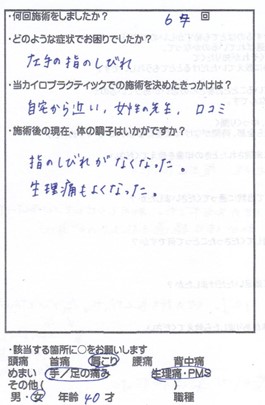 ・何回施術をしましたか? 6~7 回
・どのような症状でお困りでしたか?
左手の指のしびれ
・当カイロプラクティックでの施術を決めたきっかけは?
自宅から近い, 女性の先生, 口コミ
・施術後の現在、体の調子はいかがですか?
指のしびれがなくなった。
生理痛もよくなった。
・該当する箇所に○をお願いします
頭痛 首痛 肩こり 腰痛 背中痛
めまい 手/足の痛み 生理痛・PMS
その他( )
男・女 年齢 40 才 職種